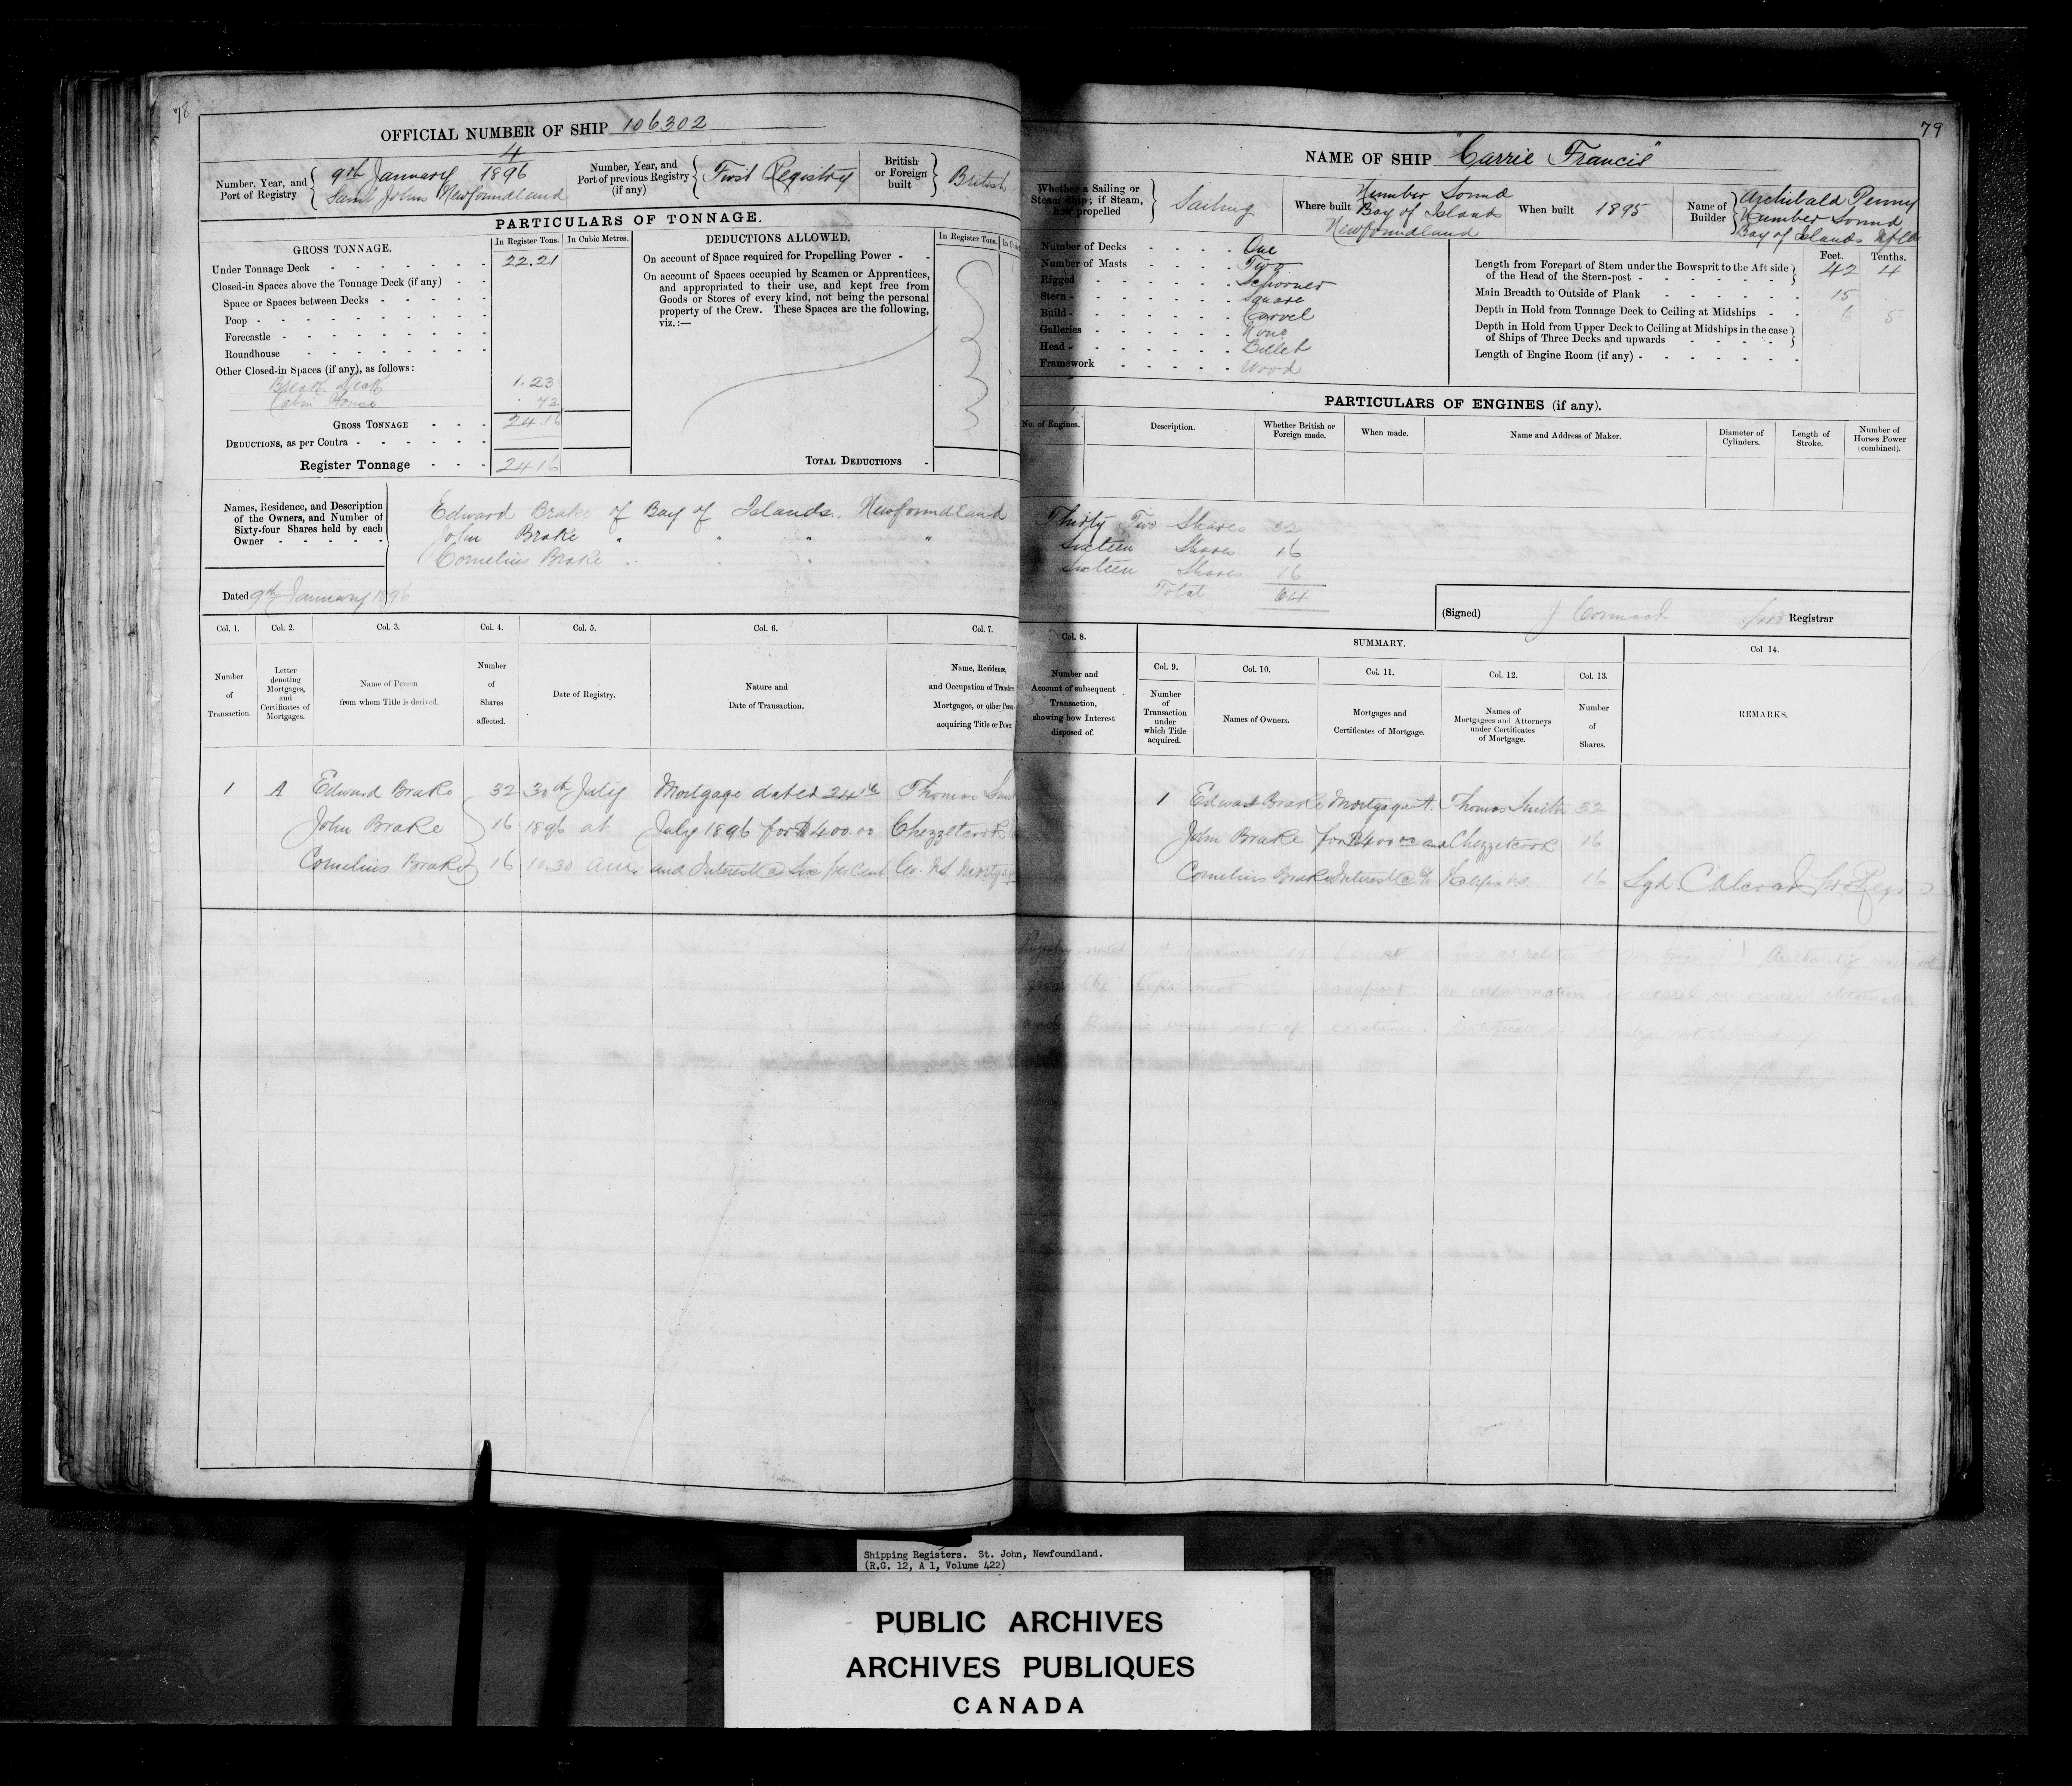 78
OFFICIAL NUMBER OF SHIP 106302
Number, Year, and
Port of Registry
4
9th January 1896
Saint Johns Newfoundland
Number, Year, and
Port of previous Registry
(if any)
First Registry
British
or Foreign
built
British
PARTICULARS OF TONNAGE.
GROSS TONNAGE.
In Register Tons.
In Cubic Metres.
Under Tonnage Deck 22.21
Closed-in Spaces above the Tonnage Deck (if any)
Space or Spaces between Decks
Poop
Forecastle
Roundhouse
Other Closed-in Spaces (if any), as follows:
Break Deck 1.23
Cabin House .72
GROSS TONNAGE 24.16
DEDUCTIONS, as per Contra
Register Tonnage 24.16
DEDUCTIONS ALLOWED.
In Register Tons.
On account of Space required for Propelling Power
On account of Spaces occupied by Seamen or Apprentices,
and appropriated to their use, and kept free from
Goods or Stores of every kind, not being the personal
property of the Crew. These Spaces are the following,
viz.:—
TOTAL DEDUCTIONS
Names, Residence, and Description
of the Owners, and Number of
Sixty-four Shares held by each
Owner
Edward Brake of Bay of Islands. Newfoundland
John Brake " " " "
Cornelius Brake " " " "
Dated 9th January 1896
Col. 1.
Number
of
Transaction.
Col. 2.
Letter
denoting
Mortgages,
and
Certificates of
Mortgages.
Col. 3.
Name of Person
from whom Title is derived.
Col. 4.
Number
of
Shares
affected.
Col. 5.
Date of Registry.
Col. 6.
Nature and
Date of Transaction.
Col. 7.
Name, Residence,
and Occupation of
Mortgagee, or other
acquiring Title or
1 A Edward Brake 32 30th July Mortgage dated 24th Thomas
John Brake 16 1896 at July 1896 for $400.00 Chezzetcook
Cornelius Brake 16 10.30 am and Interest @ Six per Cent Co. NS
79
NAME OF SHIP "Carrie Francis"
Whether a Sailing or
Steam Ship; if Steam,
how propelled
Sailing
Where built
Humber Sound
Bay of Islands
Newfoundland
When built 1895
Name of
Builder
Archibald Penny
Humber Sound
Bay of Islands Nfld
Number of Decks One
Number of Masts Two
Rigged Schooner
Stern Square
Build Carvel
Galleries None
Head Billet
Framework Wood
Feet. Tenths.
Length from Forepart of Stem under the Bowsprit to the Aft side
of the Head of the Stern-post 42 4
Main Breadth to Outside of Plank 15
Depth in Hold from Tonnage Deck to Ceiling at Midships 6 5
Depth in Hold from Upper Deck to Ceiling at Midships in the case
of Ships of Three Decks and upwards
Length of Engine Room (if any)
PARTICULARS OF ENGINES (if any).
No. of Engines.
Description.
Whether British or
Foreign made.
When made.
Name and Address of Maker.
Diameter of
Cylinders.
Length of
Stroke.
Number of
Horses Power
(combined).
Thirty Two Shares 32
Sixteen Shares 16
Sixteen Shares 16
Total 64
(Signed) J Cormack Registrar
Col. 8.
Number and
Account of subsequent
Transaction,
showing how Interest
disposed of.
SUMMARY.
Col. 9.
Number
of
Transaction
under
which Title
acquired.
Col. 10.
Names of Owners.
Col. 11.
Mortgages and
Certificates of Mortgage.
Col. 12.
Names of
Mortgagees and Attorneys
under Certificates
of Mortgage.
Col. 13.
Number
of
Shares.
Col 14.
REMARKS.
1 Edward Brake Mortgage A. Thomas Smith 32
John Brake for $400.00 and Chezzetcook 16
Cornelius Brake Interest @ 6% Halifax NS 16
Shipping Registers. St. John, Newfoundland.
(R.G. 12, A 1, Volume 422)
PUBLIC ARCHIVES
ARCHIVES PUBLIQUES
CANADA